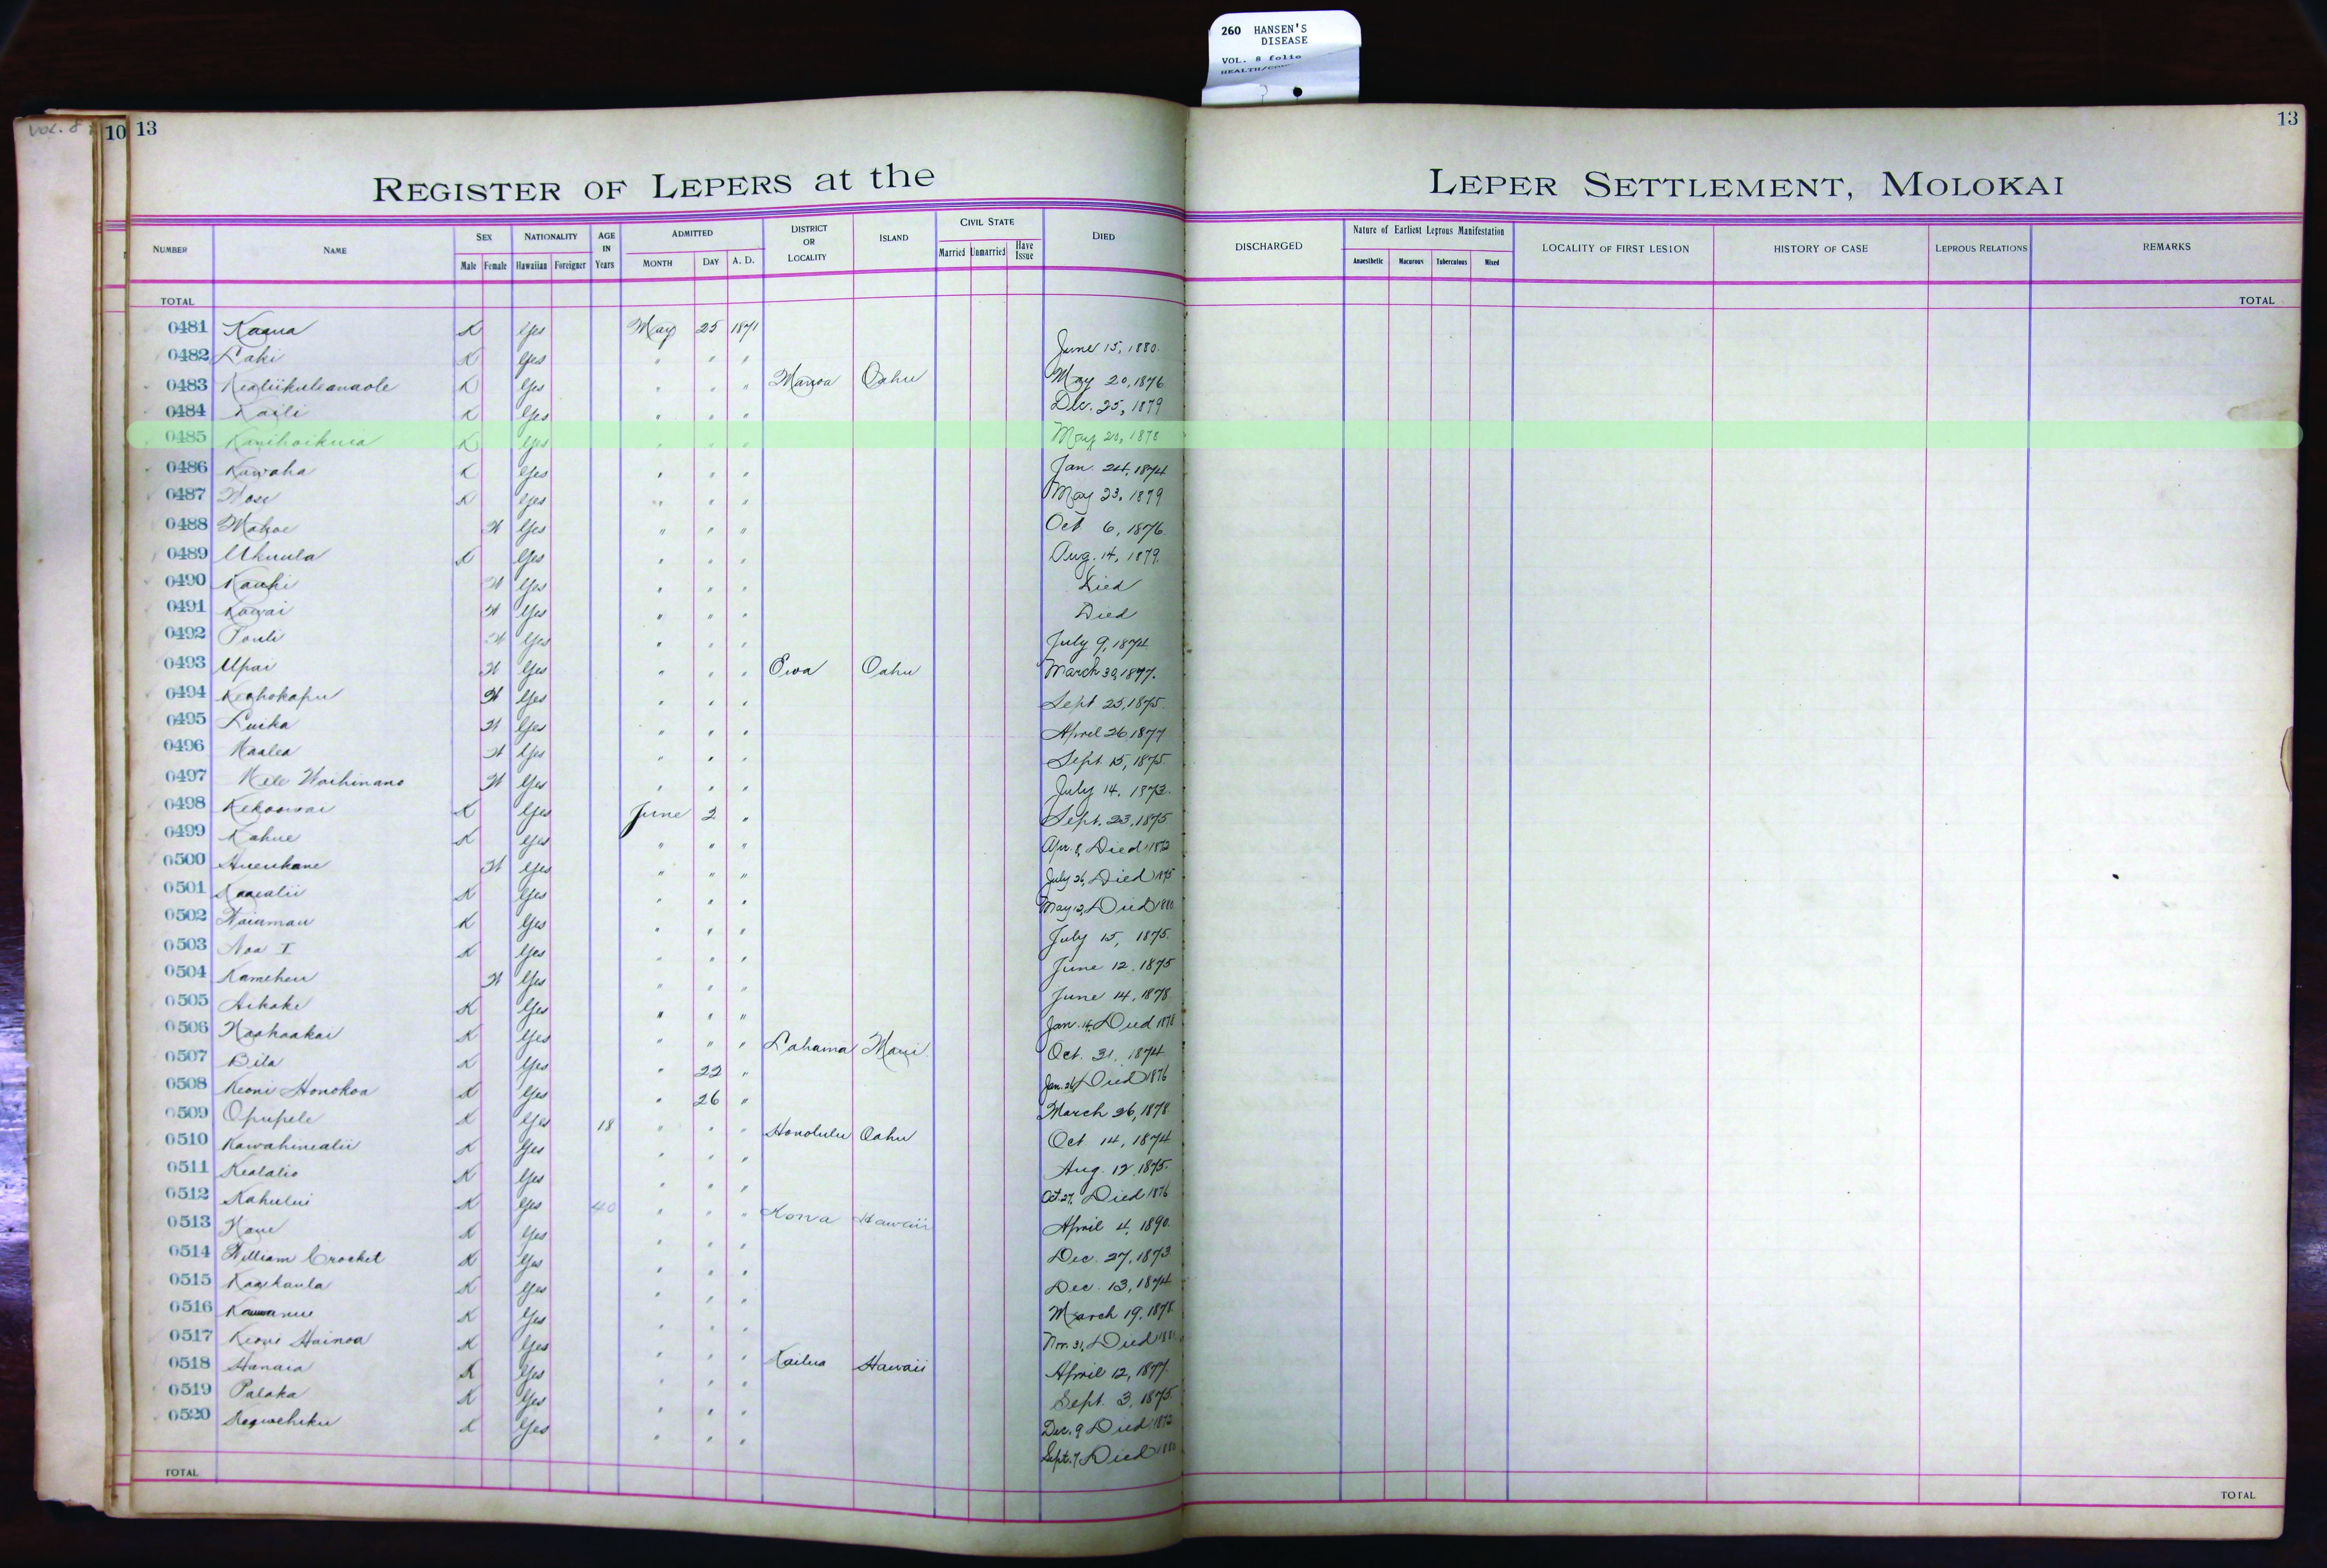 260 HANSEN'S
DISEASE
VOL. 8 folio
VOL. 8
10 13
13
REGISTER OF LEPERS at the LEPER SETTLEMENT, MOLOKAI
NUMBER NAME SEX Male Female NATIONALITY Hawaiian Foreigner AGE IN Years ADMITTED MONTH DAY A. D. DISTRICT OR LOCALITY ISLAND CIVIL STATE Married Unmarried Have Issue DIED DISCHARGED Nature of Earliest Leprous Manifestation Anaesthetic Macurous Tuberculous Mixed LOCALITY OF FIRST LESION HISTORY OF CASE LEPROUS RELATIONS REMARKS
TOTAL TOTAL
0481 Kaaua K Yes May 25 1871 June 15, 1880.
0482 Laki K Yes " " " May 20, 1876
0483 Kealiikuleanaole K Yes " " " Manoa Oahu Dec. 25, 1879
0484 Kaili K Yes " " "
0485 Kanihoikuia K Yes " " " May 20, 1878
0486 Kawaha K Yes " " " Jan. 24, 1874
0487 K Yes " " " May 23, 1879
0488 Mahoe W Yes " " " Oct 6, 1876.
0489 Ukuula K Yes " " " Aug. 14, 1879.
0490 Kauhi W Yes " " " Died
0491 Kawai W Yes " " " Died
0492 Pouli W Yes " " " July 9, 1874
0493 Upai W Yes " " " Ewa Oahu March 30, 1877.
0494 Keohokapu W Yes " " " Sept 25, 1875.
0495 Luika W Yes " " " April 26 1877
0496 Kaalea W Yes " " " Sept. 15, 1875.
0497 Mele Waihinano W Yes " " " July 14, 1873.
0498 Kekoowai K Yes June 2 " Sept. 23, 1875
0499 Kahue K Yes " " " Apr. 8, Died 1872
0500 Hueukane W Yes " " " July 26, Died 1875
0501 Kaaealii K Yes " " " May 12, Died 1880
0502 Waiamau K Yes " " " July 15, 1875.
0503 Noa I K Yes " " " June 12, 1875
0504 Kameheu W Yes " " " June 14, 1878
0505 Aikake K Yes " " " Jan. 14, Died 1878
0506 Naahaakai K Yes " " " Lahaina Maui Oct. 31, 1874
0507 Bila K Yes " 22 " Jan. 26, Died 1876
0508 Keoni Honokoa K Yes " 26 " March 26, 1878
0509 Opupele K Yes 18 " " " Honolulu Oahu Oct 14, 1874
0510 Kawahinealii K Yes " " " Aug. 12, 1875.
0511 Kealalio K Yes " " " Oct. 27, Died 1876
0512 Kahului K Yes 40 " " " Kona Hawaii April 4, 1890.
0513 K Yes " " " Dec. 27, 1873
0514 William Crocket K Yes " " " Dec. 13, 1874
0515 Kaaikaula K Yes " " " March 19, 1878
0516 K Yes " " " Nov. 31, Died
0517 Keoni Hainoa K Yes " " " Kailua Hawaii April 12, 1877.
0518 Hanaia K Yes " " " Sept. 3, 1875.
0519 Palaka K Yes " " " Dec. 9 Died 1872
0520 K Yes " " " Sept. 7, Died
TOTAL TOTAL